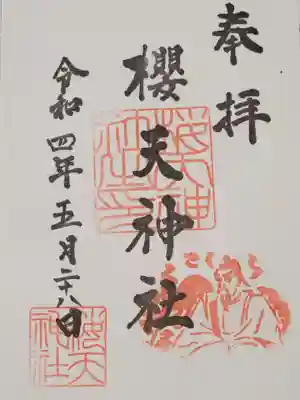 奉拝
櫻天神社
令和四年五月二十八日
櫻天神社
さくら
櫻天
神社